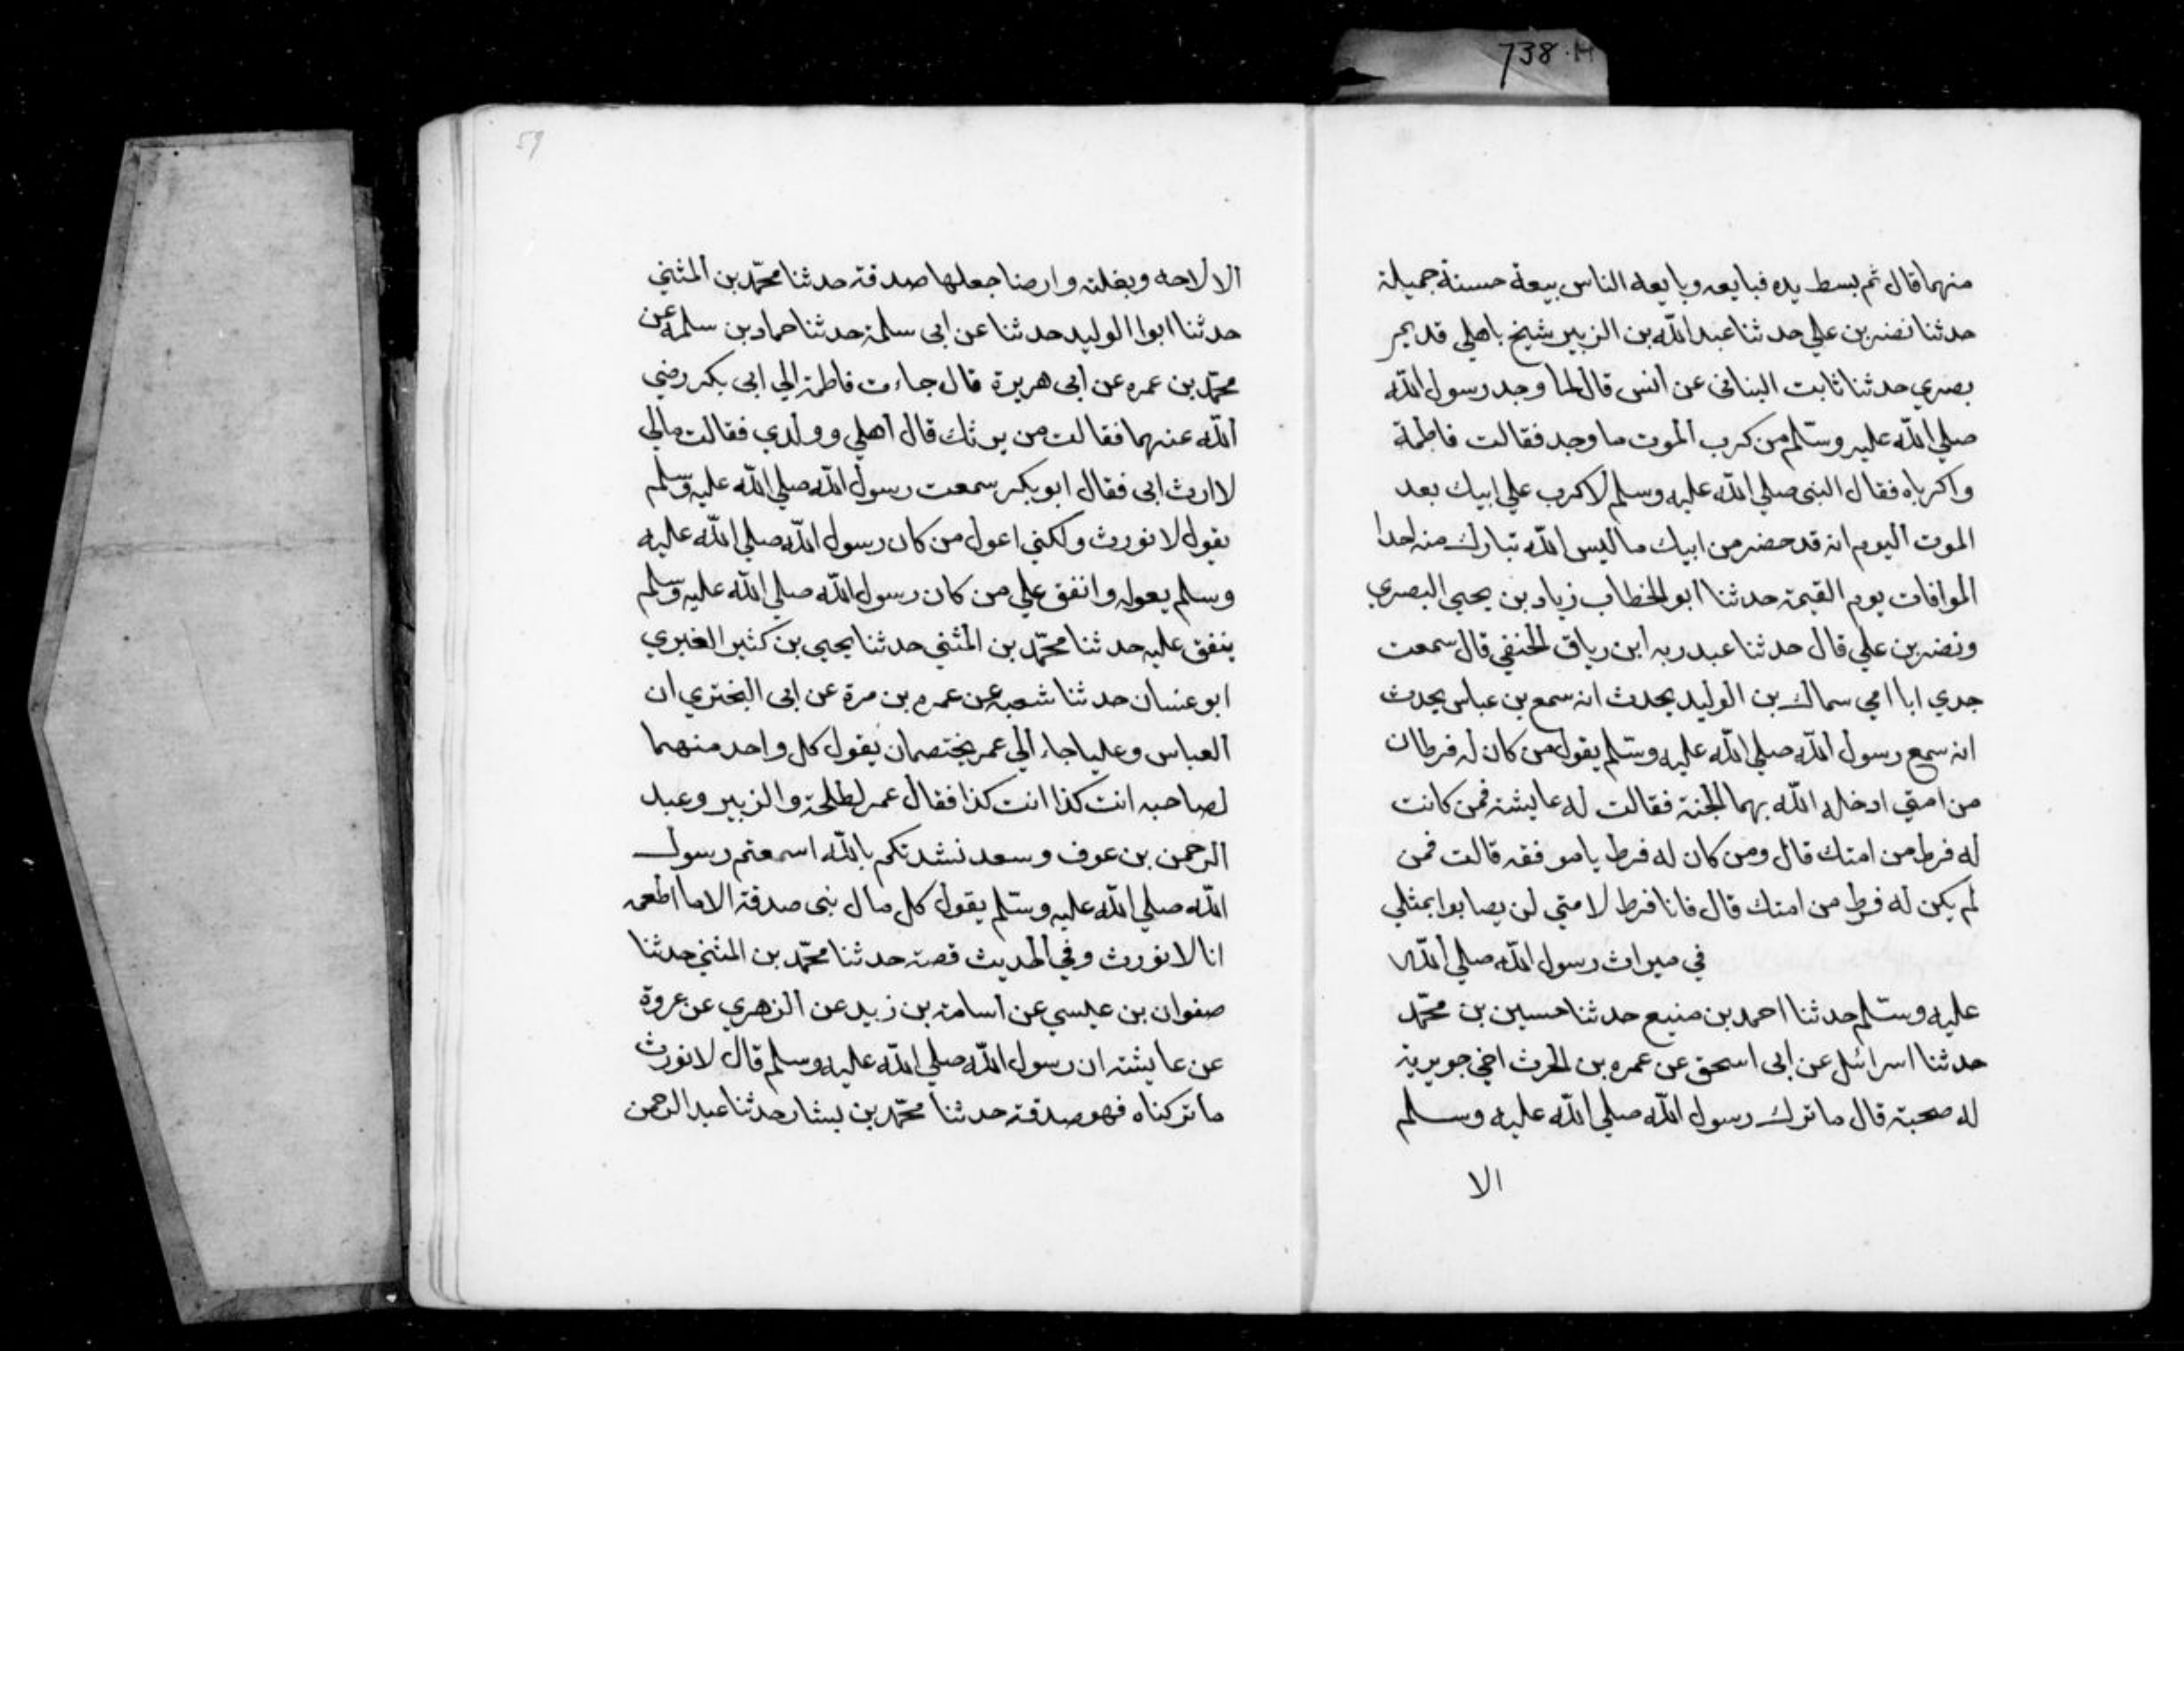 738.H
منهما قال ثم بسط يده فبايعه وبايعه الناس بيعة حسنة جميلة
حدثنا نضر بن علي حدثنا عبد الله بن الزبير شيخ باهلي قديم
بصري حدثنا ثابت البناني عن انس قال لما وجد رسول الله
صلي الله عليه وسلم من كرب الموت ما وجد فقالت فاطمة
واكرباه فقال النبي صلي الله عليه وسلم لا كرب علي ابيك بعد
الموت اليوم انه قد حضر من ابيك ما ليس الله تبارك منه احدا
الموافات يوم القيمة حدثنا ابو الخطاب زياد بن يحيي البصري
ونضر بن علي قال حدثنا عبد ربه ابن رباق الحنفي قال سمعت
جدي ابا امي سماك بن الوليد يحدث انه سمع بن عباس يحدث
انه سمع رسول الله صلي الله عليه وسلم يقول من كان له فرطان
من امتي ادخله الله بهما الجنة فقالت له عايشة فمن كانت
له فرط من امتك قال ومن كان له فرط يا موفقه قالت فمن
لم يكن له فرط من امتك قال فانا فرط لامتي لن يصابوا بمثلي
في ميراث رسول الله صلي الله
عليه وسلم حدثنا احمد بن منيع حدثنا حسين بن محمد
حدثنا اسرائل عن ابي اسحق عن عمره بن الحرث اخي جويرية
له صحبة قال ما ترك رسول الله صلي الله عليه وسلم
الا
59
الا لاحه وبغلته وارضا جعلها صدقة حدثنا محمد بن المثني
حدثنا ابوا الوليد حدثنا عن ابي سلمة حدثنا حماد بن سلمه عن
محمد بن عمره عن ابي هريرة قال جاءت فاطمة الي ابي بكر رضي
الله عنهما فقالت من يرثك قال اهلي وولدي فقالت مالي
لا ارث ابي فقال ابو بكر سمعت رسول الله صلي الله عليه وسلم
يقول لا نورث ولكني اعول من كان رسول الله صلي الله عليه
وسلم يعوله وانفق علي من كان رسول الله صلي الله عليه وسلم
ينفق عليه حدثنا محمد بن المثني حدثنا يحيي بن كثير الغبري
ابو عنسان حدثنا شعبه عن عمره بن مرة عن ابي البختري ان
العباس وعليا جاء الي عمر يختصمان يقول كل واحد منهما
لصاحبه انت كذا انت كذا فقال عمر لطلحة والزبير وعبد
الرحمن بن عوف وسعد نشدتكم بالله اسمعتم رسول
الله صلي الله عليه وسلم يقول كل مال نبي صدقة الا ما اطعمه
انا لا نورث وفي الحديث قصة حدثنا محمد بن المثني حدثنا
صفوان بن عيسي عن اسامة بن زيد عن الزهري عن عروة
عن عايشة ان رسول الله صلي الله عليه وسلم قال لا نورث
ما تركناه فهو صدقة حدثنا محمد بن بشار حدثنا عبد الرحمن